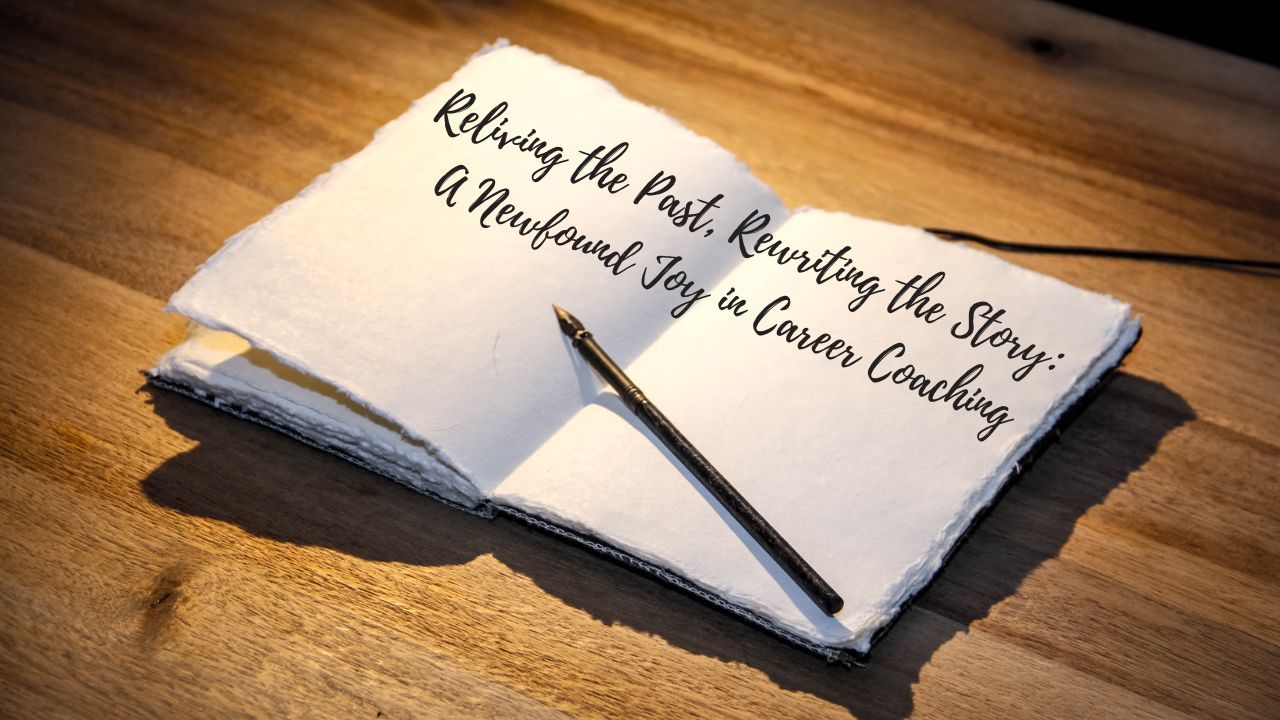 Reliving the Past, Rewriting the Story:
A Newfound Joy in Career Coaching